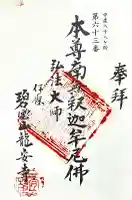 奉拝
中国八十八ヶ所
第六十三番
本尊南無釈迦牟尼佛
弘法大師
龍安寺